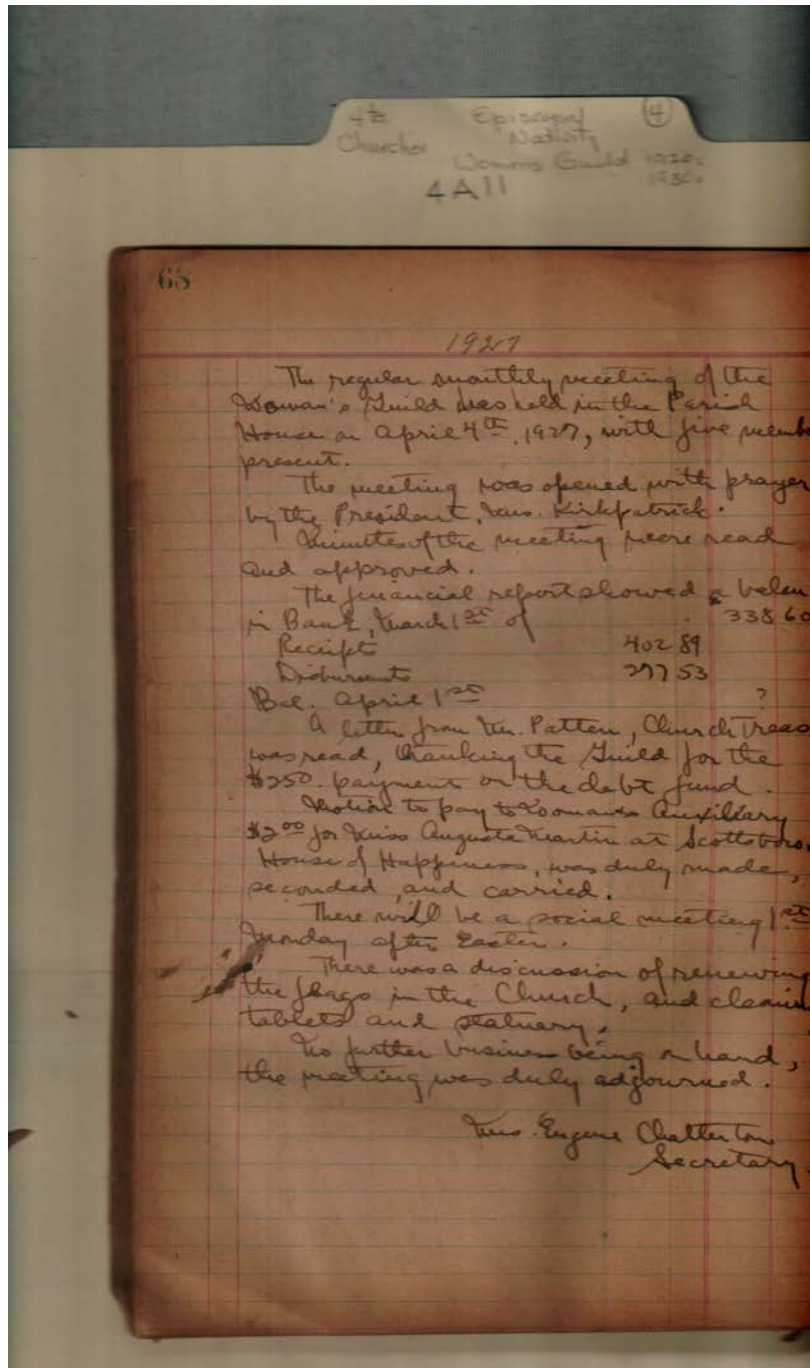 4th Episcopal 4
Churches Nativity
Womens Guild 1920s
1930s
4A11
68
1927
The regular monthly meeting of the
Woman's Guild was held in the Parish
House on April 4th, 1927, with five membe
present.
The meeting was opened with prayer
by the President, Mrs. Kirkpatrick.
Minutes of the meeting were read
and approved.
The financial report showed a balan
in Bank, March 1st of 338 60
Receipts 402 89
Disbursents 277 53
Bal. April 1st ?
A letter from Mr. Patten, Church Treas
was read, thanking the Guild for the
$250. payment on the debt fund.
Motion to pay to Womans Auxiliary
$2.00 for Miss Augusta Martin at Scottsboro,
House of Happiness, was duly made,
seconded, and carried.
There will be a social meeting 1st
Monday after Easter.
There was a discussion of renewing
the flags in the Church, and cleanin
tablets and statuary.
No further business being on hand,
the meeting was duly adjourned.
Mrs. Eugene Chatterton
Secretary.